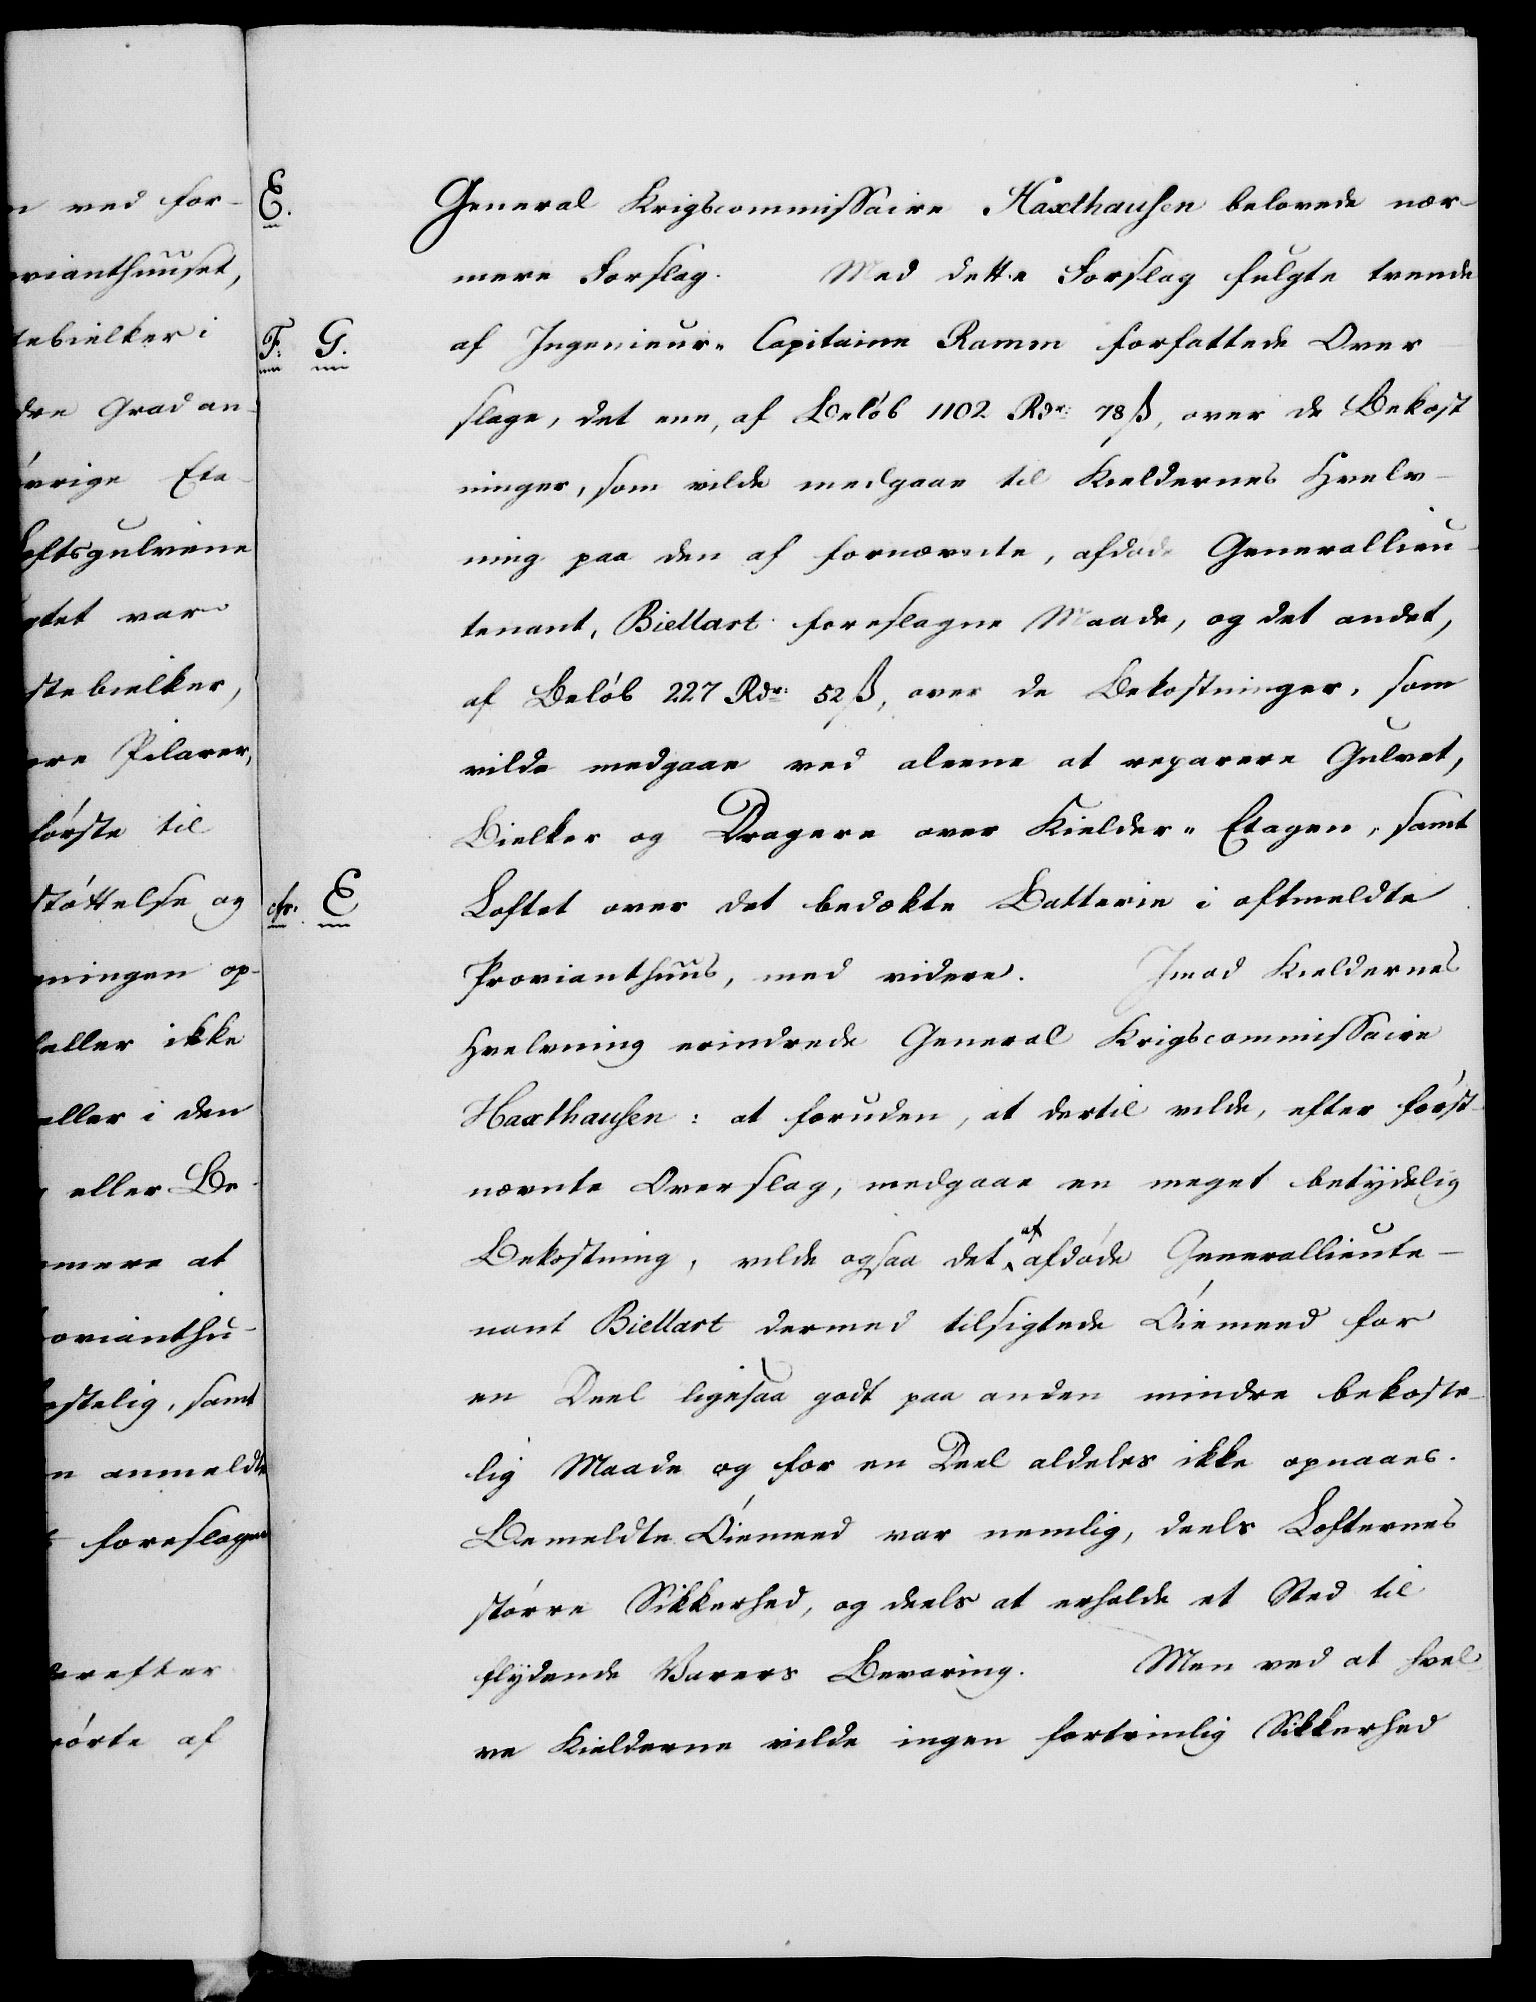 n ved for-
ovianthuuset,
tebielker i
dre Grad an-
övrige Eta-
Loftsgulvene
gtet var
stebielker,
ere Pilarer,
förste til
stöttelse og
ningen op-
heller ikke
eller i den
eller Be-
mere at
rovianthu-
ostelig, samt
n anmeldte
foreslagne
derefter
rörte af
E. General Krigscommissaire Haxthausen belovede nær-
mere Forslag. Med dette Forslag fulgte trende
F. G. af Ingenieur-Capitaine Ramm forfattede Over-
slage, det ene, af Belöb 1102 Rdr: 78 ß, over de Bekost
ninger, som vilde medgaae til Kieldernes Hvelv-
ning paa den af fornævnte, afdöde Generallieu-
tenant, Biellart foreslagne Maade, og det andet,
af Belöb 227 Rdr: 52 ß, over de Bekostninger, som
vilde medgaae ved alene at reparere Gulvet,
Bielker og Dragere over Kielder-Etagen, samt
cfr. E Loftet over det bedækte Batterie i oftmeldte
Provianthuus, med videre. Imod Kieldernes
Hvelvning erindrede General Krigscommissaire
Haxthausen: at foruden, at dertil vilde, efter först-
nævnte Overslag, medgaae en meget betÿdelig
Bekostning, vilde ogsaa det af afdöde Generallieute-
nant Biellart dermed tilsigtede Öiemeed for
en Deel ligesaa godt paa anden mindre bekoste-
lig Maade og for en Deel aldeles ikke opnaaes.
Bemeldte Öiemeed var nemlig, deels Lofternes
större Sikkerhed, og deels at erholde et Sted til
flÿdende Varers Bevaring. Men ved at hvel-
ve Kielderne vilde ingen fortrinlig Sikkerhed